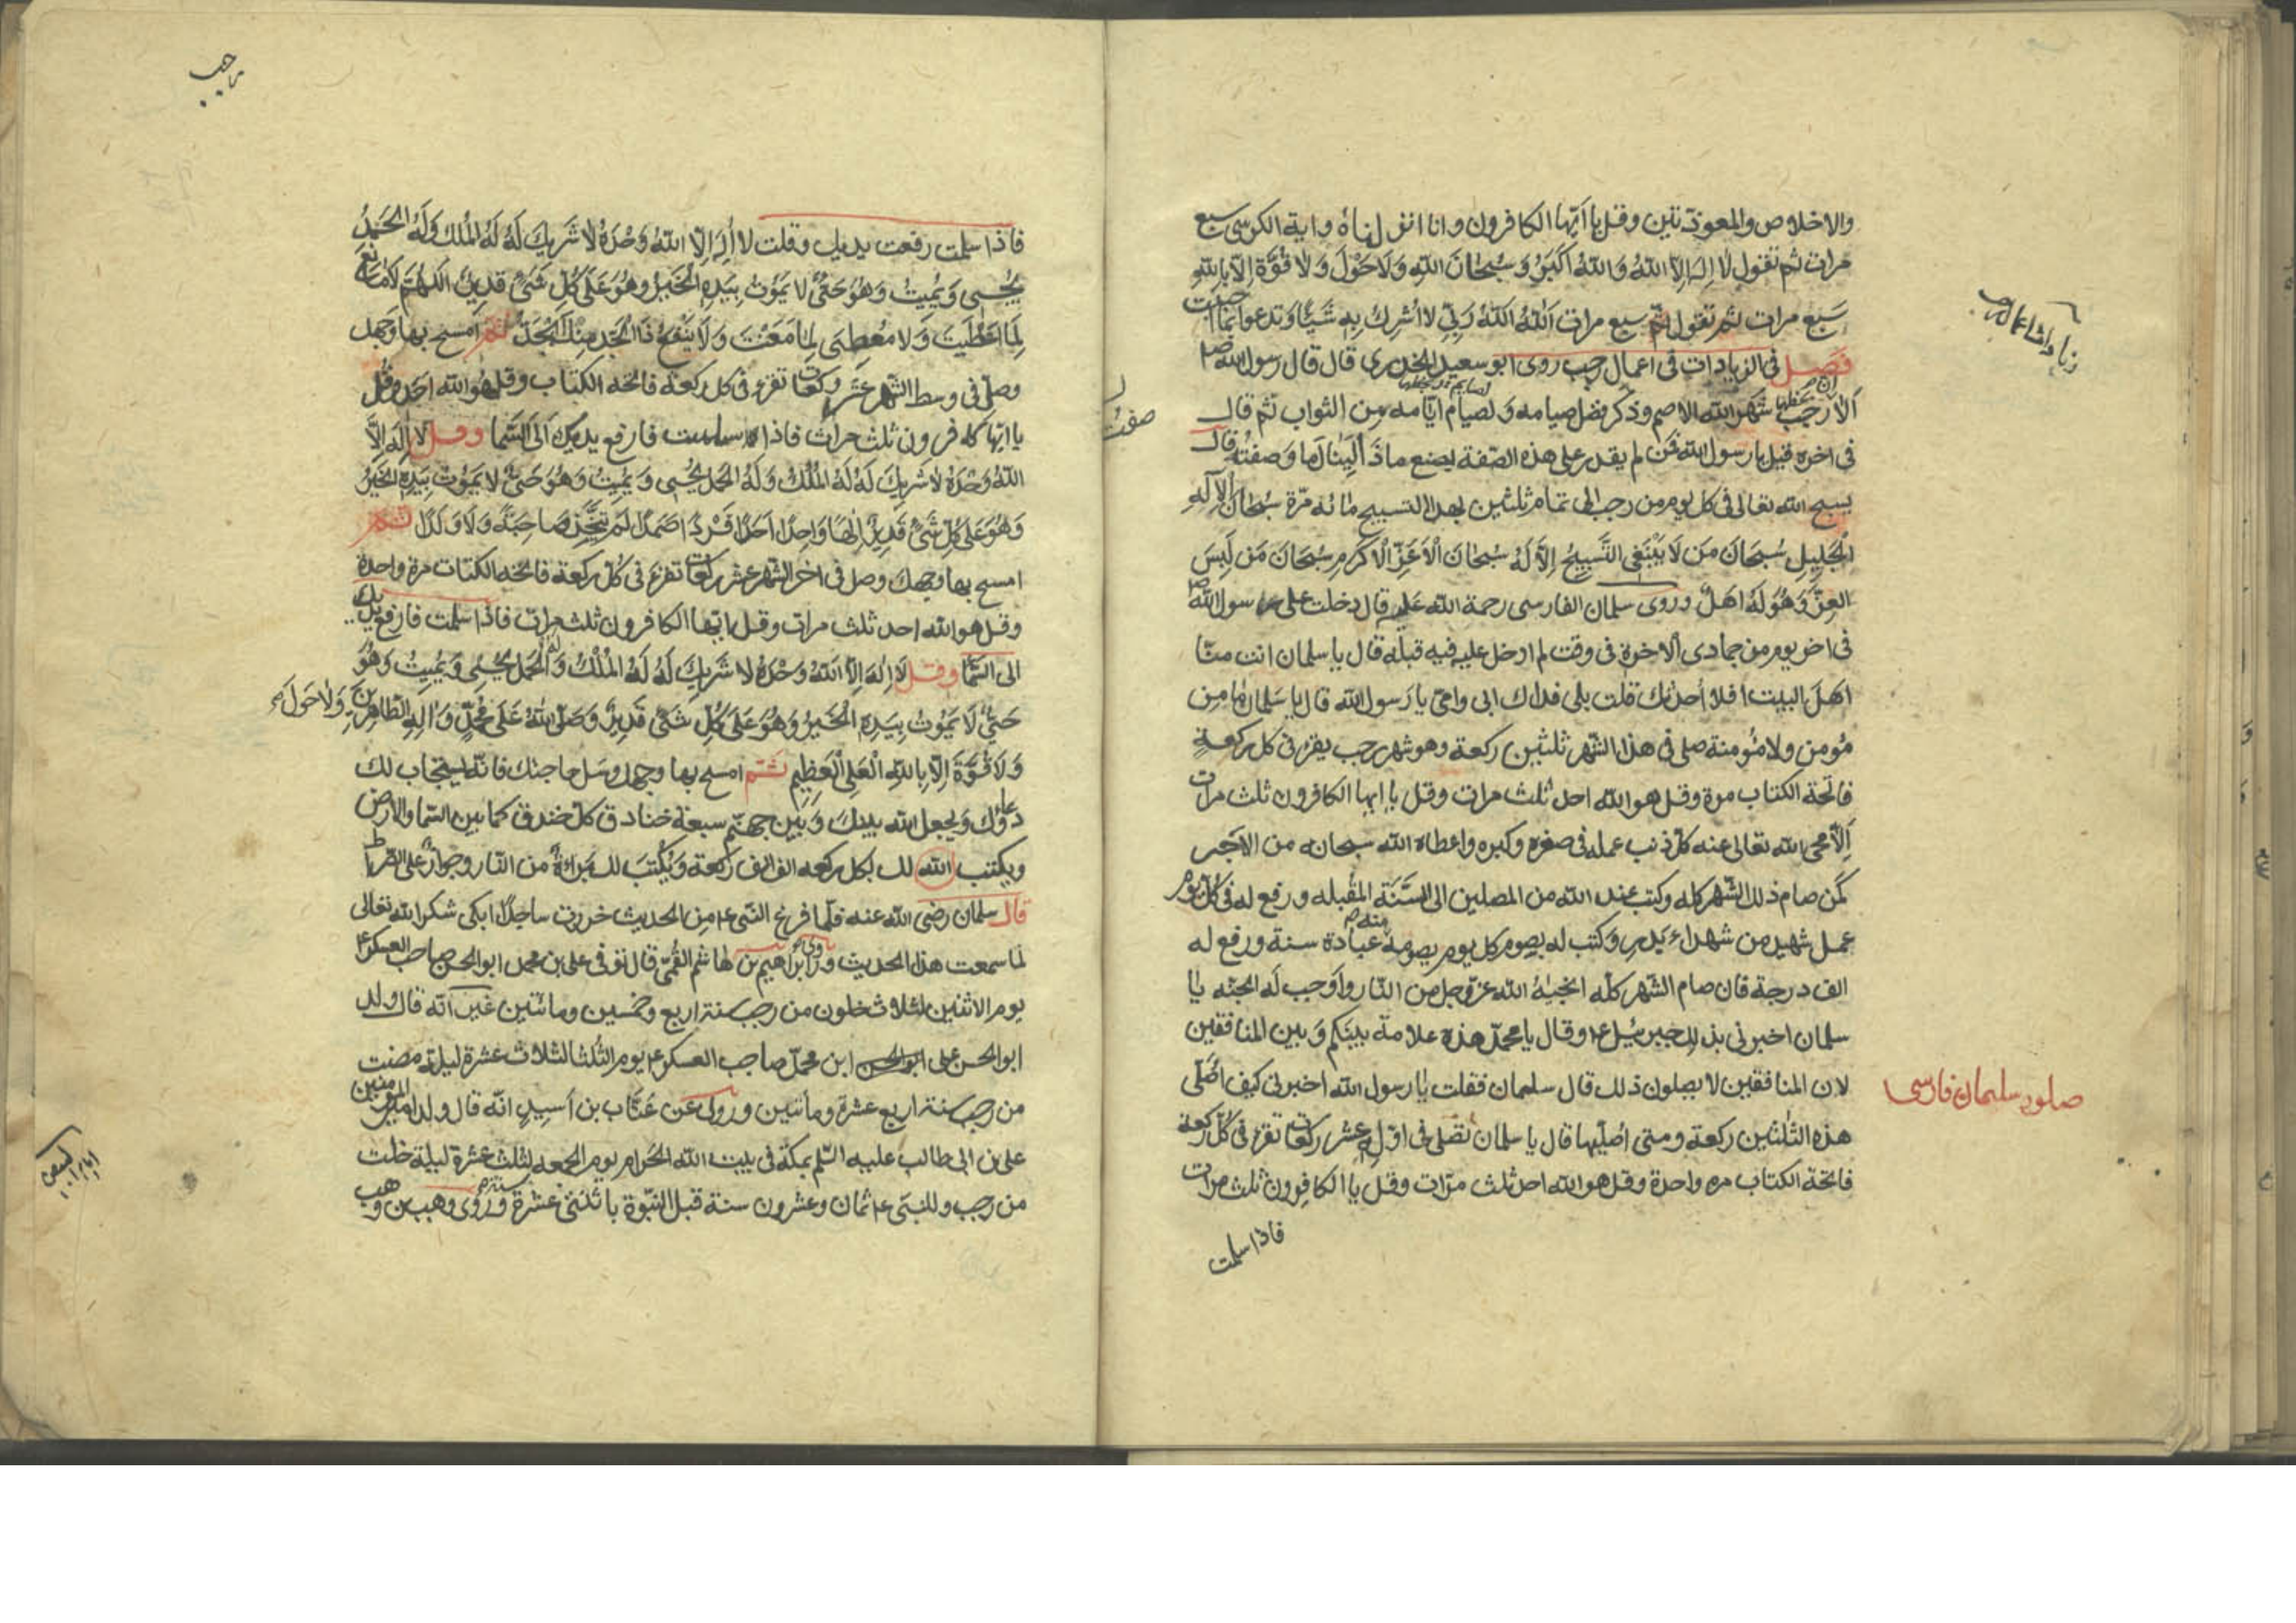 والاخلاص والمعوذتين وقل يا ايها الكافرون وانا انزلناه واية الكرسي سبع
مرات ثم تقول لا اله الا الله والله اكبر وسبحان الله ولا حول ولا قوة الا بالله
سبع مرات ثم تقول سبع مرات الله الله ربي لا اشرك به شيئا وتدعو بما احببت
فصل في الزيادات في اعمال رجب روى ابو سعيد الخدري قال قال رسول الله ص
الا ان رجب شهر الله الاصم وذكر فضل صيامه ولصيام ايامه من الثواب ثم قال
في اخره قيل يا رسول الله فمن لم يقدر على هذه الصفة يصنع ماذا لينال ما وصفته قال
يسبح الله تعالى في كل يوم من رجب الى تمام ثلثين بهذا التسبيح مائه مرة سبحان الاله
الجليل سبحان من لا ينبغي التسبيح الا له سبحان الاعز الاكرم سبحان من لبس
العز وهو له اهل وروى سلمان الفارسي رحمة الله عليه قال دخلت على رسول الله ص
في اخر يوم من جمادى الاخرة في وقت لم ادخل عليه فيه قبله قال يا سلمان انت منا
اهل البيت افلا احدثك قلت بلى فداك ابي وامي يا رسول الله قال يا سلمان ما من
مؤمن ولا مؤمنة صلى في هذا الشهر ثلثين ركعة وهو شهر رجب يقرء في كل ركعة
فاتحة الكتاب مرة وقل هو الله احد ثلث مرات وقل يا ايها الكافرون ثلث مرات
الا محى الله تعالى عنه كل ذنب عمله في صغره وكبره واعطاه الله سبحانه من الاجر
كمن صام ذلك الشهر كله وكتب عند الله من المصلين الى السنة المقبله ورفع له في كل يوم
عمل شهيد من شهداء بدر وكتب له بصوم كل يوم يصومه منه عبادة سنة ورفع له
الف درجة فان صام الشهر كله انجيه الله عز وجل من النار واوجب له الجنه يا
سلمان اخبرني بذلك جبرئيل ع وقال يا محمد هذه علامة بينكم وبين المنافقين
لان المنافقين لا يصلون ذلك قال سلمان فقلت يا رسول الله اخبرني كيف اصلي
هذه الثلثين ركعة ومتى اصليها قال يا سلمان تصلي في اوله عشر ركعات تقرء في كل ركعة
فاتحة الكتاب مره واحدة وقل هو الله احد ثلث مرات وقل يا الكافرون ثلث مرات
فاذا سلمت
صفت
صلوة سلمان فارسى
رجب
فاذا سلمت رفعت يديك وقلت لا اله الا الله وحده لا شريك له له الملك وله الحمد
يحيى ويميت وهو حي لا يموت بيده الخير وهو على كل شئ قدير اللهم لا مانع
لما اعطيت ولا معطي لما منعت ولا ينفع ذا الجد منك الجد ثم امسح بها وجهك
وصل في وسط الشهر عشر ركعات تقرء في كل ركعة فاتحه الكتاب وقل هو الله احد وقل
يا ايها كافرون ثلث مرات فاذا سلمت فارفع يديك الى السما وقل لا اله الا
الله وحده لا شريك له له الملك وله الحمد يحيي ويميت وهو حي لا يموت بيده الخير
وهو على كل شئ قدير الها واحدا احدا فردا صمدا لم يتخذ صاحبة ولا ولدا ثم
امسح بها وجهك وصل في اخر الشهر عشر ركعات تقرء في كل ركعة فاتحه الكتاب مرة واحدة
وقل هو الله احد ثلث مرات وقل يا ايها الكافرون ثلث مرات فاذا سلمت فارفع يديك
الى السما وقل لا اله الا الله وحده لا شريك له له الملك وله الحمد يحيي ويميت وهو
حي لا يموت بيده الخير وهو على كل شئ قدير وصلى الله على محمد واله الطاهرين ولا حول
ولا قوة الا بالله العلي العظيم ثم امسح بها وجهك وسل حاجتك فانه يستجاب لك
دعاؤك ويجعل الله بينك وبين جهنم سبعة خنادق كل خندق كما بين السما والارض
ويكتب الله لك بكل ركعه الف الف ركعة ويكتب لك براءة من النار وجواز على الصراط
قال سلمان رضي الله عنه فلما فرغ النبي ع من الحديث خررت ساجدا ابكي شكرا لله تعالى
لما سمعت هذا الحديث وروى ابراهيم بن هاشم القمي قال توفي علي بن محمد ابو الحسن صاحب العسكر ع
يوم الاثنين لثلاث خلون من رجب سنة اربع وخمسين ومائتين غير انه قال ولد
ابو الحسن علي ابن محمد صاحب العسكر ع يوم الثلثا لثلاث عشرة ليلة مضت
من رجب سنة اربع عشرة ومائتين وروى عن عتاب بن اسيد انه قال ولد امير المؤمنين
علي بن ابي طالب عليه السلم بمكة في بيت الله الحرام يوم الجمعه لثلث عشرة ليلة خلت
من رجب وللنبي ع ثمان وعشرون سنة قبل النبوة باثنتي عشرة سنة وروى وهب بن وهب